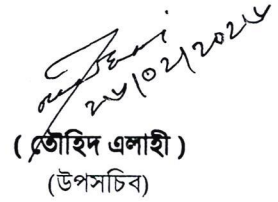 ২৬/০২/২০২৬
( তৌহিদ এলাহী )
(উপসচিব)